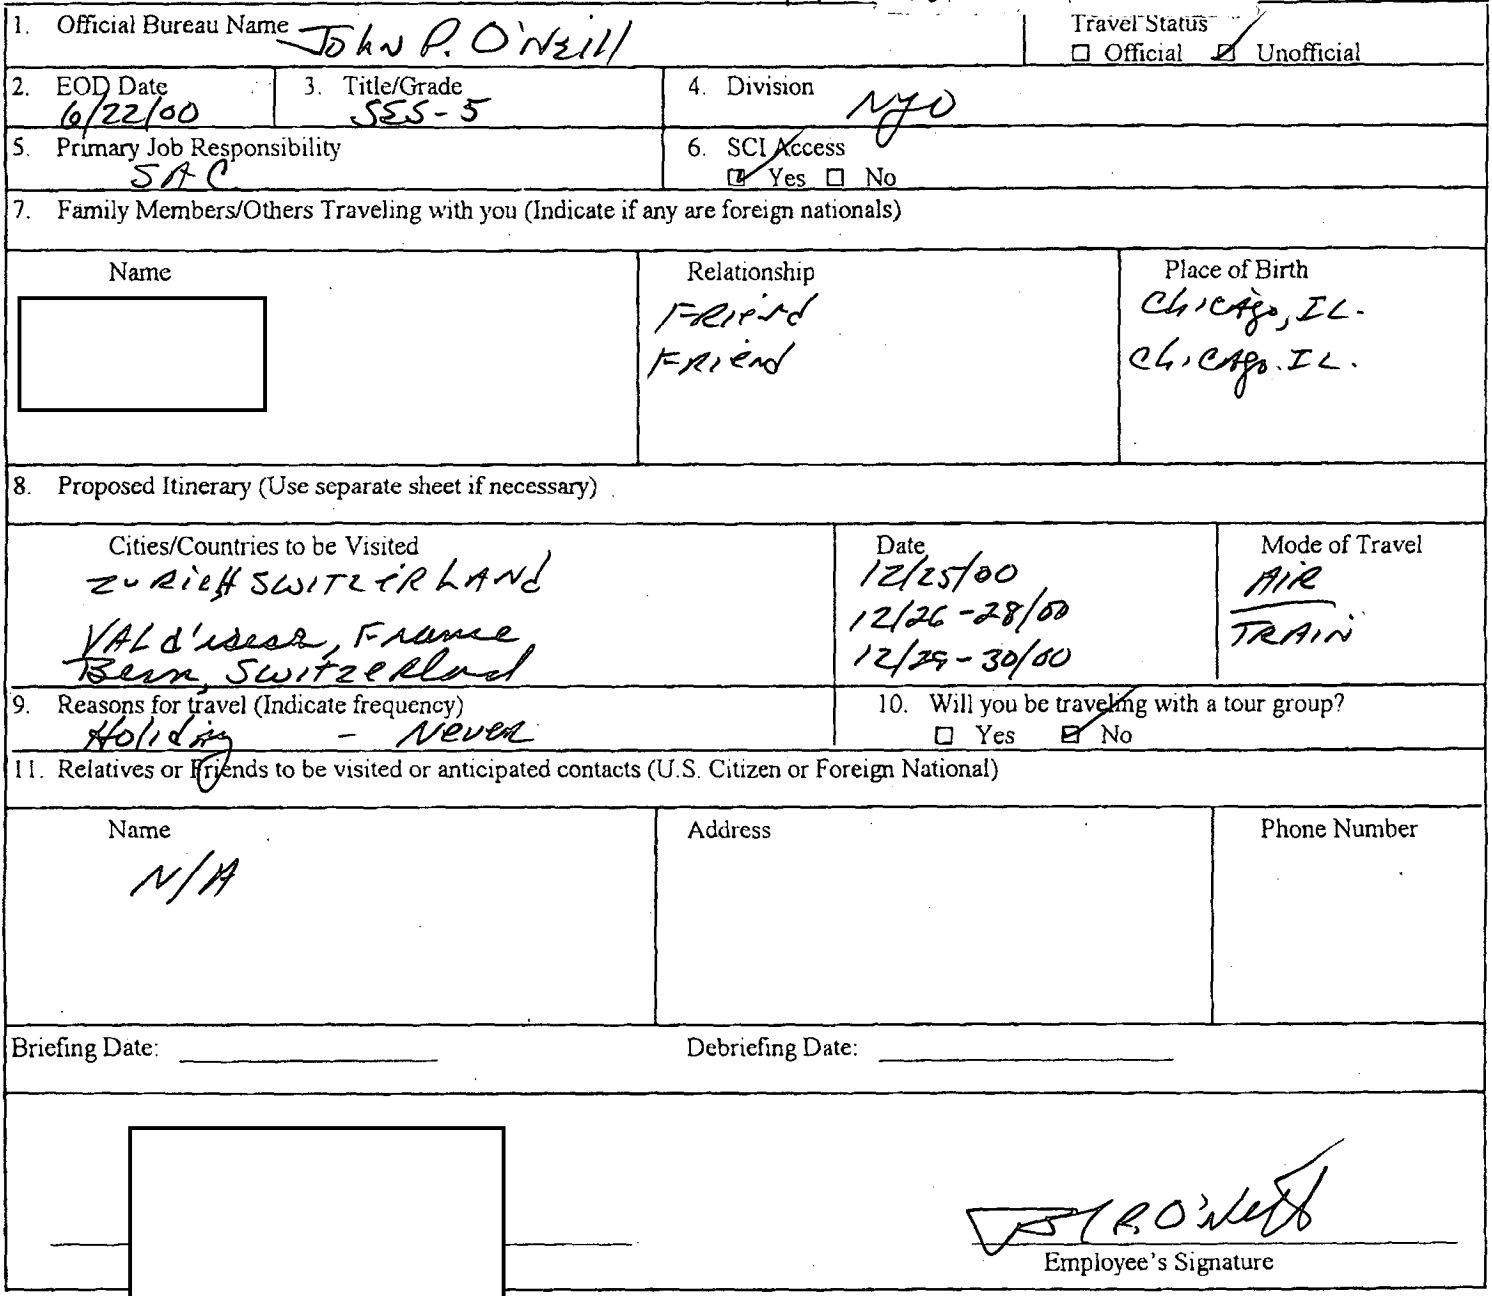 1. Official Bureau Name John P. O'Neill
Travel Status
☐ Official ☑ Unofficial
2. EOD Date 6/22/00
3. Title/Grade SES-5
4. Division NYO
5. Primary Job Responsibility SAC
6. SCI Access
☑ Yes ☐ No
7. Family Members/Others Traveling with you (Indicate if any are foreign nationals)
Name Relationship Place of Birth
Friend Chicago, IL.
Friend Chicago. IL.
8. Proposed Itinerary (Use separate sheet if necessary)
Cities/Countries to be Visited Date Mode of Travel
Zurich Switzerland 12/25/00 AIR
Val d'isear, France 12/26-28/00 TRAIN
Bern, Switzerland 12/29-30/00
9. Reasons for travel (Indicate frequency)
Holiday - Never
10. Will you be traveling with a tour group?
☐ Yes ☑ No
11. Relatives or Friends to be visited or anticipated contacts (U.S. Citizen or Foreign National)
Name Address Phone Number
N/A
Briefing Date: Debriefing Date:
John P. O'Neill
Employee's Signature